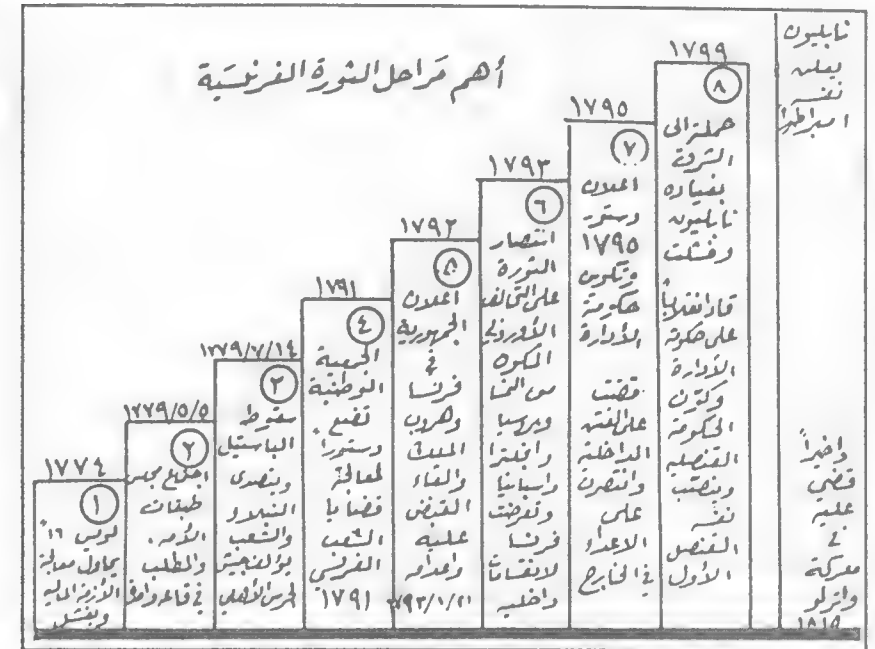 أهم مراحل الثورة الفرنسية
١٧٧٤
١
لويس ١٦
يحاول معالجة
الأزمة المالية
ويفشل
١٧٧٩/٥/٥
٢
اجتماع مجلس
طبقات
الأمة.
والمطلب
في قاعة واحدة
١٧٧٩/٧/١٤
٣
سقوط
الباستيل
ويتصدى
النبلاء
والشعب
يؤلف جيش
الحرس الأهلي
١٧٩١
٤
الجمعية
الوطنية
تضع
دستوراً
لمعالجة
قضايا
الشعب
الفرنسي
١٧٩١
١٧٩٢
٥
اعلان
الجمهورية
في
فرنسا
وهروب
الملك
والقاء
القبض
عليه
واعدامه
١٧٩٣/١/٢١
١٧٩٣
٦
انتصار
الثورة
على التحالف
الأوروبي
المكون
من النمسا
وبروسيا
وانجلترا
واسبانيا
وتعرضت
فرنسا
لانقسامات
داخلية
١٧٩٥
٧
اعلان
دستور
١٧٩٥
وتكوين
حكومة
الأدارة
قضت
على الفتن
الداخلية
وانتصرت
على
الاعداء
في الخارج
١٧٩٩
٨
حملته الى
الشرق
بقيادة
نابليون
وفشلت
قاد انقلاباً
على حكومة
الأدارة
وكون
الحكومة
القنصلية
وينصب
نفسه
القنصل
الأول
نابليون
يعلن
نفسه
امبراطوراً
واخيراً
قضي
عليه
في
معركة
واترلو
١٨١٥